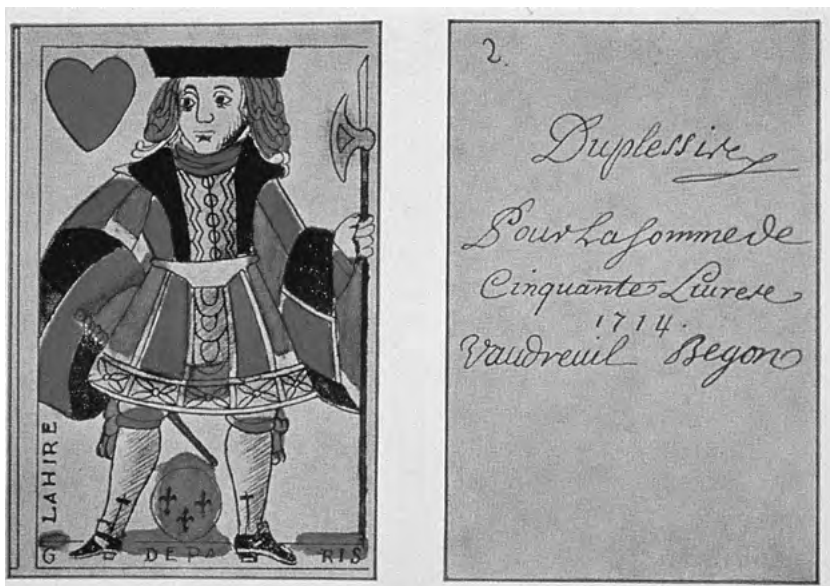 LAHIRE
G DE PA RIS
2.
Duplessise
Pour La Somme de
Cinquante Liurese
1714.
Vaudreuil Begon